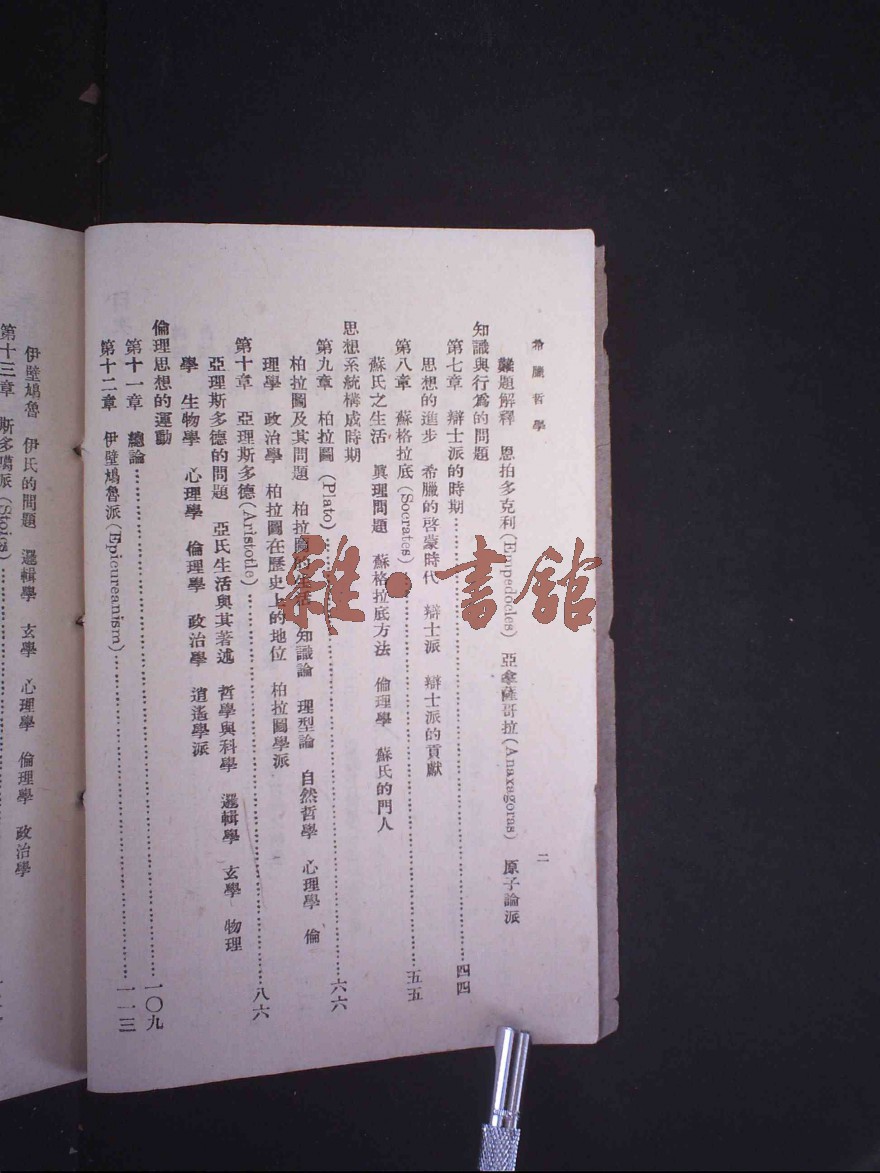 希臘哲學
二
難題解釋 恩拍多克利(Empedocles) 亞拿薩哥拉(Anaxagoras) 原子論派
知識與行爲的問題
第七章 辯士派的時期……四四
思想的進步 希臘的啓蒙時代 辯士派 辯士派的貢獻
第八章 蘇格拉底(Socrates)……五五
蘇氏之生活 眞理問題 蘇格拉底方法 倫理學 蘇氏的門人
思想系統構成時期
第九章 柏拉圖(Plato)……六六
柏拉圖及其問題 柏拉圖的生活 知識論 理型論 自然哲學 心理學 倫
理學 政治學 柏拉圖在歷史上的地位 柏拉圖學派
第十章 亞理斯多德(Aristotle)……八六
亞理斯多德的問題 亞氏生活與其著述 哲學與科學 邏輯學 玄學 物理
學 生物學 心理學 倫理學 政治學 逍遙學派
倫理思想的運動
第十一章 總論……一〇九
第十二章 伊壁鳩魯派(Epicureanism)……一一三
伊壁鳩魯 伊氏的問題 邏輯學 玄學 心理學 倫理學 政治學
第十三章 斯多噶派(Stoics)……
雜·書館